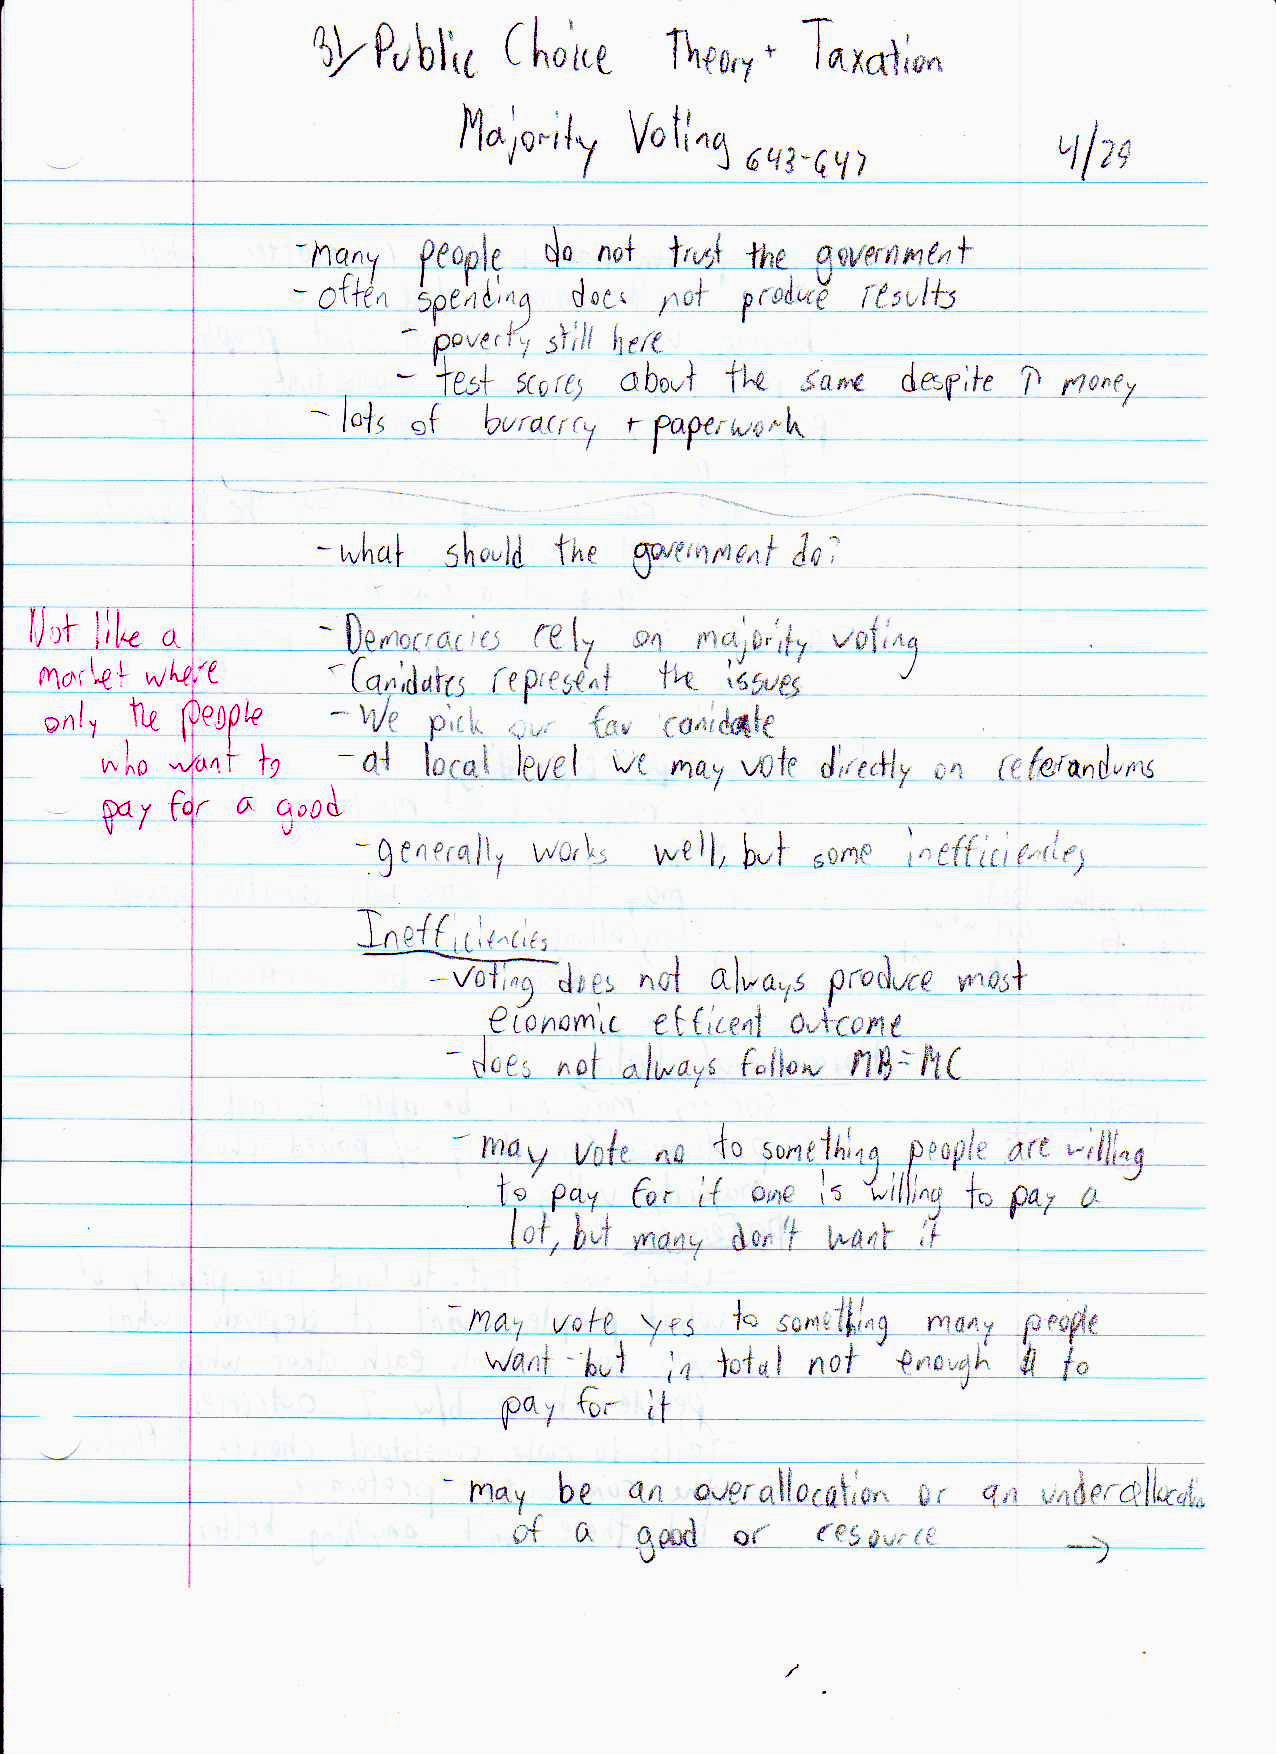 31/ Public Choice Theory + Taxation
Majority Voting 643-647 4/29
-many people do not trust the government
- often spending does not produce results
- poverty still here
- test scores about the same despite ↑ money
- lots of buracrcy + paperwork
-what should the government do?
- Democracies rely on majority voting
- Canidates represent the issues
- We pick our fav canidate
- at local level we may vote directly on referandums
- generally works well, but some inefficiencies
Not like a
market where
only the people
who want to
pay for a good
Inefficiencies
-voting does not always produce most
economic efficent outcome
- does not always follow MB=MC
- may vote no to something people are willing
to pay for if one is willing to pay a
lot, but many don't want it
- may vote yes to something many people
want - but in total not enough $ to
pay for it
- may be an overallocation or an underallocatio
of a good or resource →